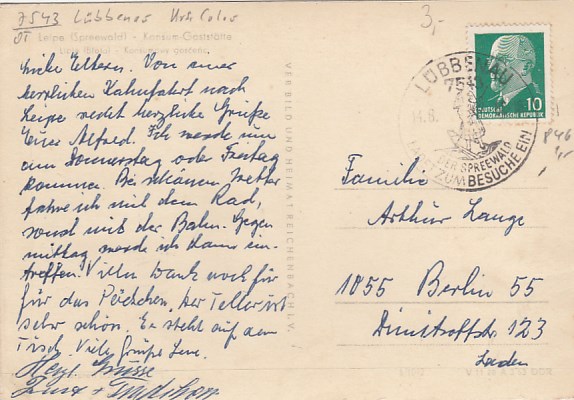 7543 Lübbenau
3,-
OT Leipe (Spreewald) - Konsum-Gaststätte
Liebe Eltern. Von einer
herrlichen Kahnfahrt nach
Leipe sendet herzliche Grüße
Euer Alfred. Ich werde nun
am Donnerstag oder Freitag
kommen. Bei schönem Wetter
fahre ich mit dem Rad,
sonst mit der Bahn. Gegen
mittag werde ich dann ein-
treffen. Vielen Dank noch für
für das Päckchen, der Teller ist
sehr schön. Er steht auf dem
Tisch. Viele Grüße
Herzl. Grüsse
VERBILD UND HEIMAT REICHENBACH I. V.
LÜBBENAU
754
DER SPREEWALD
LADET ZUM BESUCHE EIN
10
DEUTSCHE
DEMOKRATISCHE REPUBLIK
Familie
Arthur Lange
1855 Berlin 55
Dimitroffstr. 123
Laden